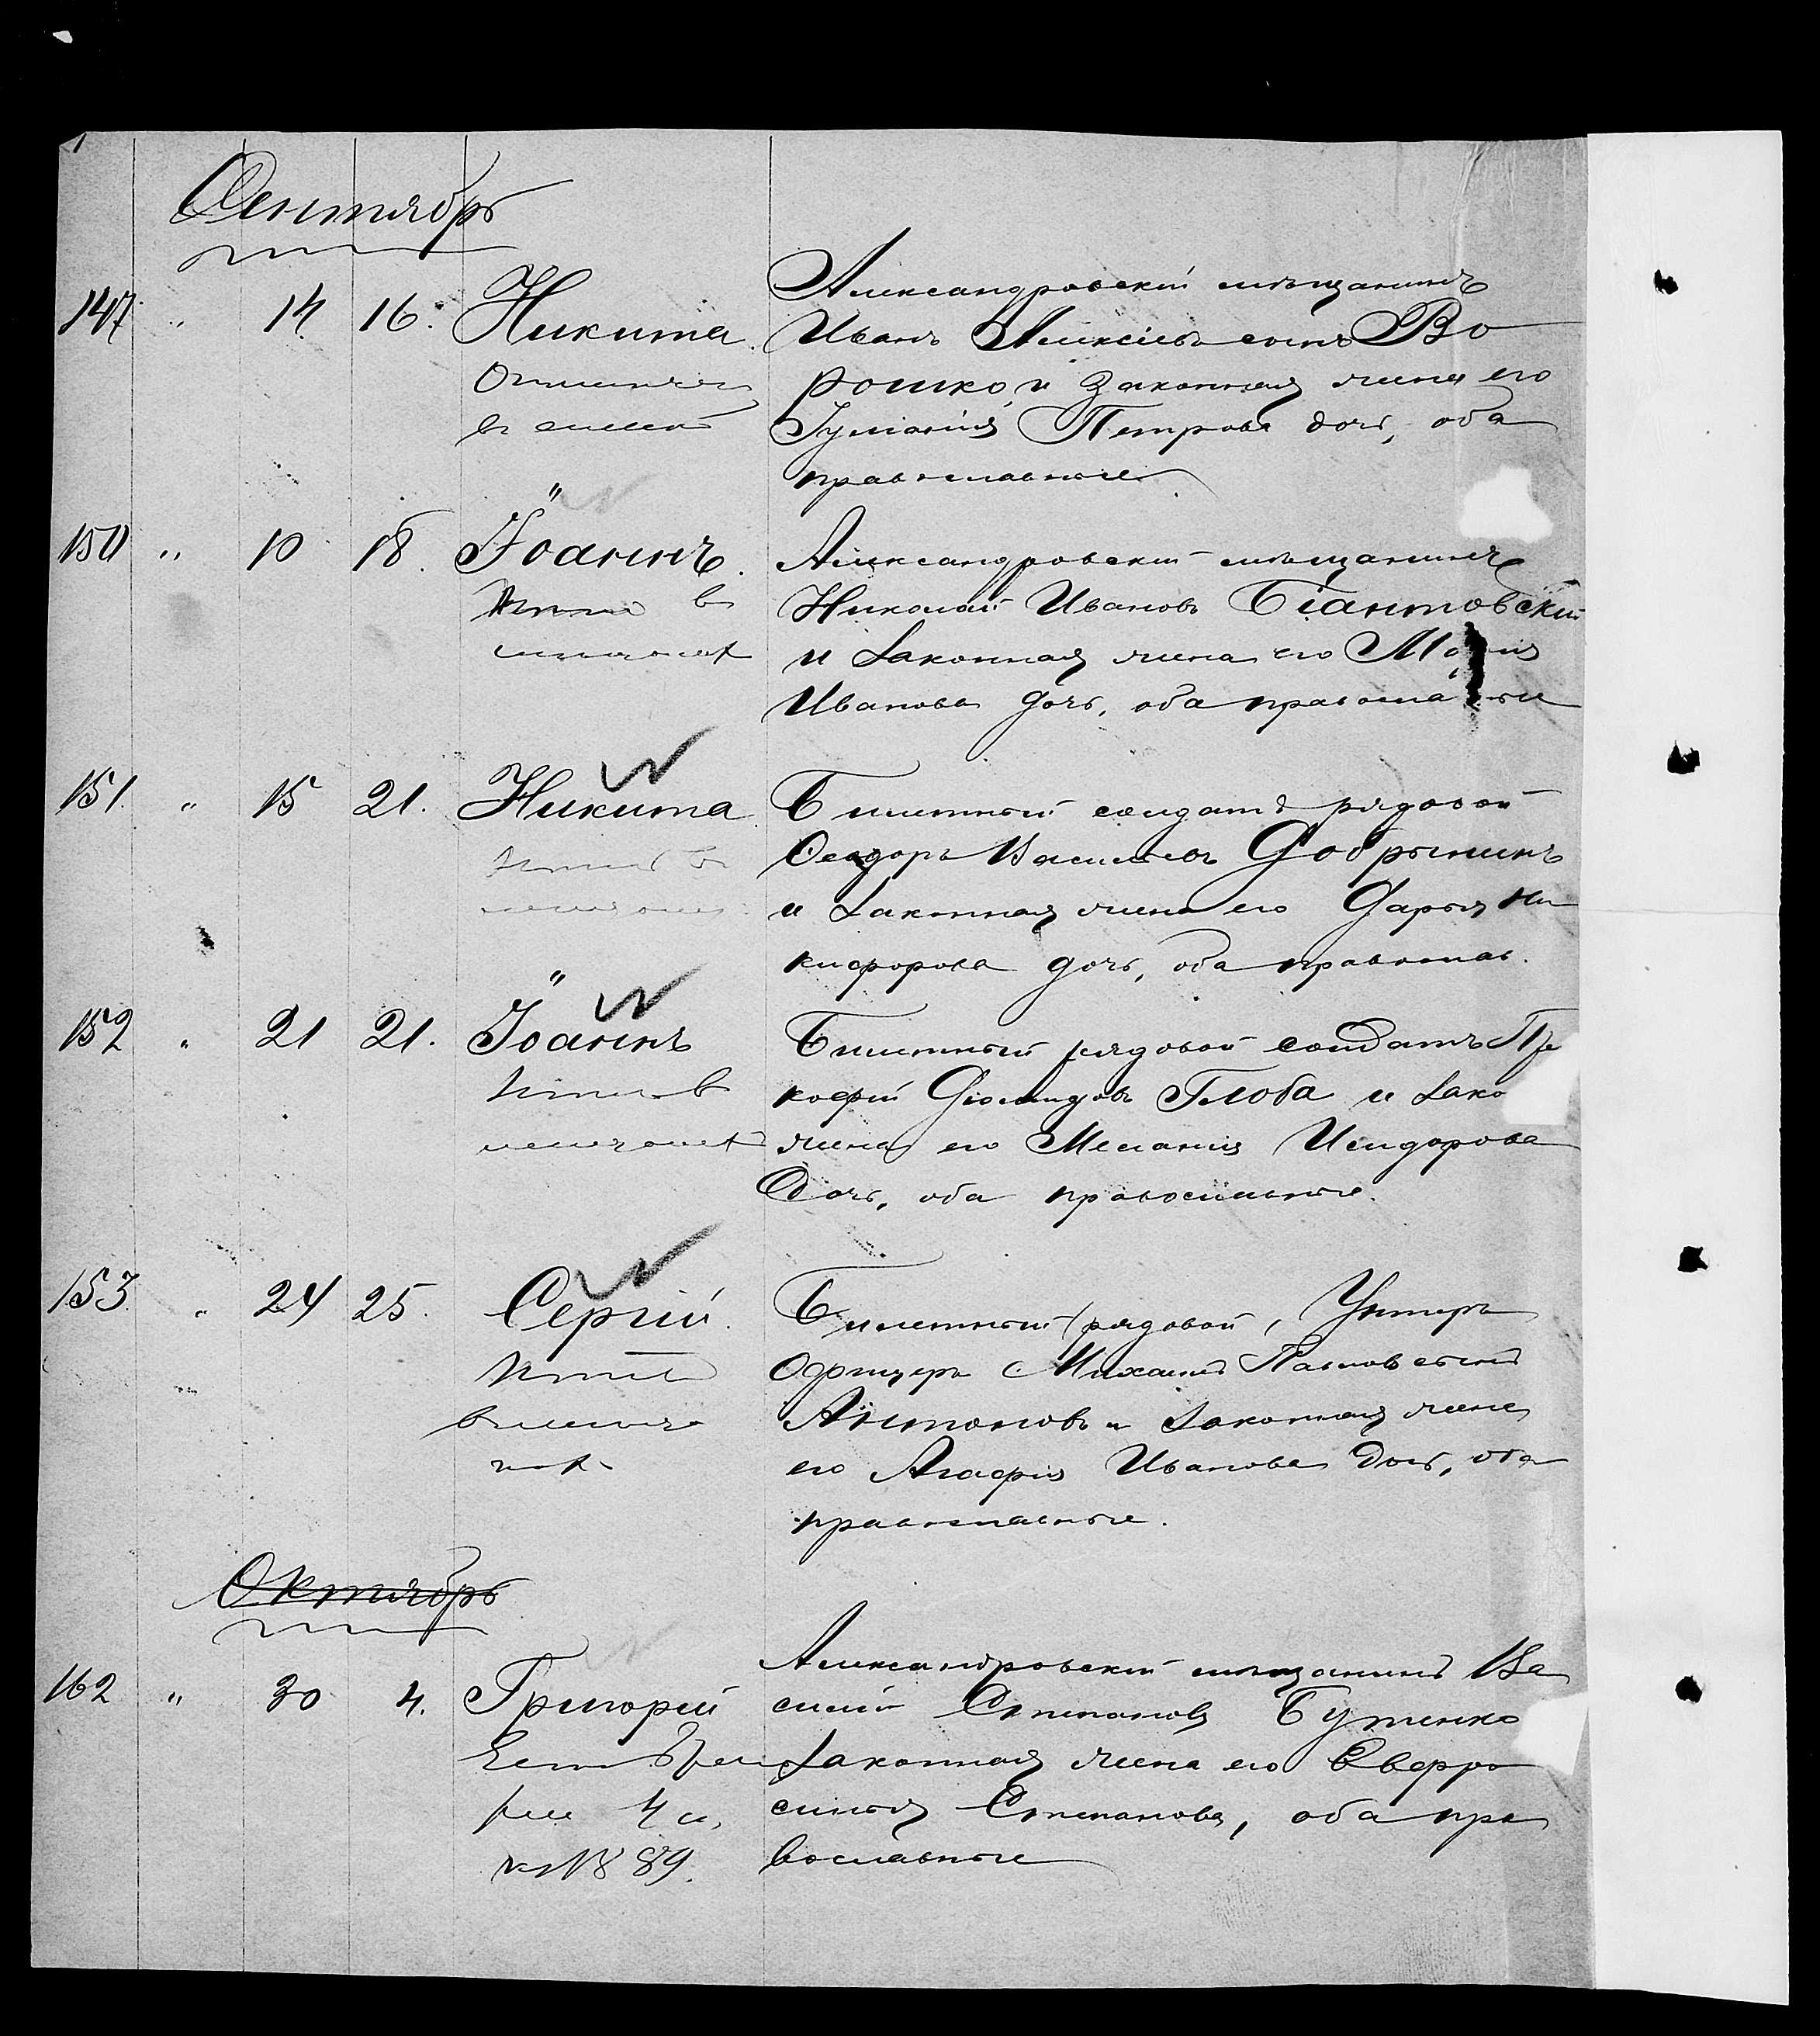 Сентябрь
147. " 14. 16. Никита. Александровскій мѣщанинъ
Иванъ Алексѣевъ сынъ Во
рошко, и законная жена его
Іуліанія Петрова дочь, оба
православные.
150 " 10 18. Іоаннъ. Александровскій мѣщанинъ
въ Николай Ивановъ Біантовскій
и законная жена его Марія
Иванова дочь, оба православные
151. " 15 21. Никита. Билетный солдатъ рядовой
Ѳеодоръ Васильевъ Добрынинъ
и законная жена его Дарья Ни
кифорова дочь, оба православ.
152 " 21 21. Іоаннъ Билетный рядовой солдатъ Про
кофій Діомидовъ Глоба и зако
жена его Меланія Исидорова
Дочь, оба православные.
153. " 24 25. Сергій. Билетный рядовой, Унтеръ
Офицеръ Михаилъ Павловъ сынъ
Антоновъ и законная жена
его Агафія Иванова дочь, оба
православные.
Октябрь
162 " 30 4. Григорій Александровскій мѣщанинъ Ва
силій Степановъ Бутенко
законная жена его Евфро
4 синья Степанова, оба пра
№ 89. вославные